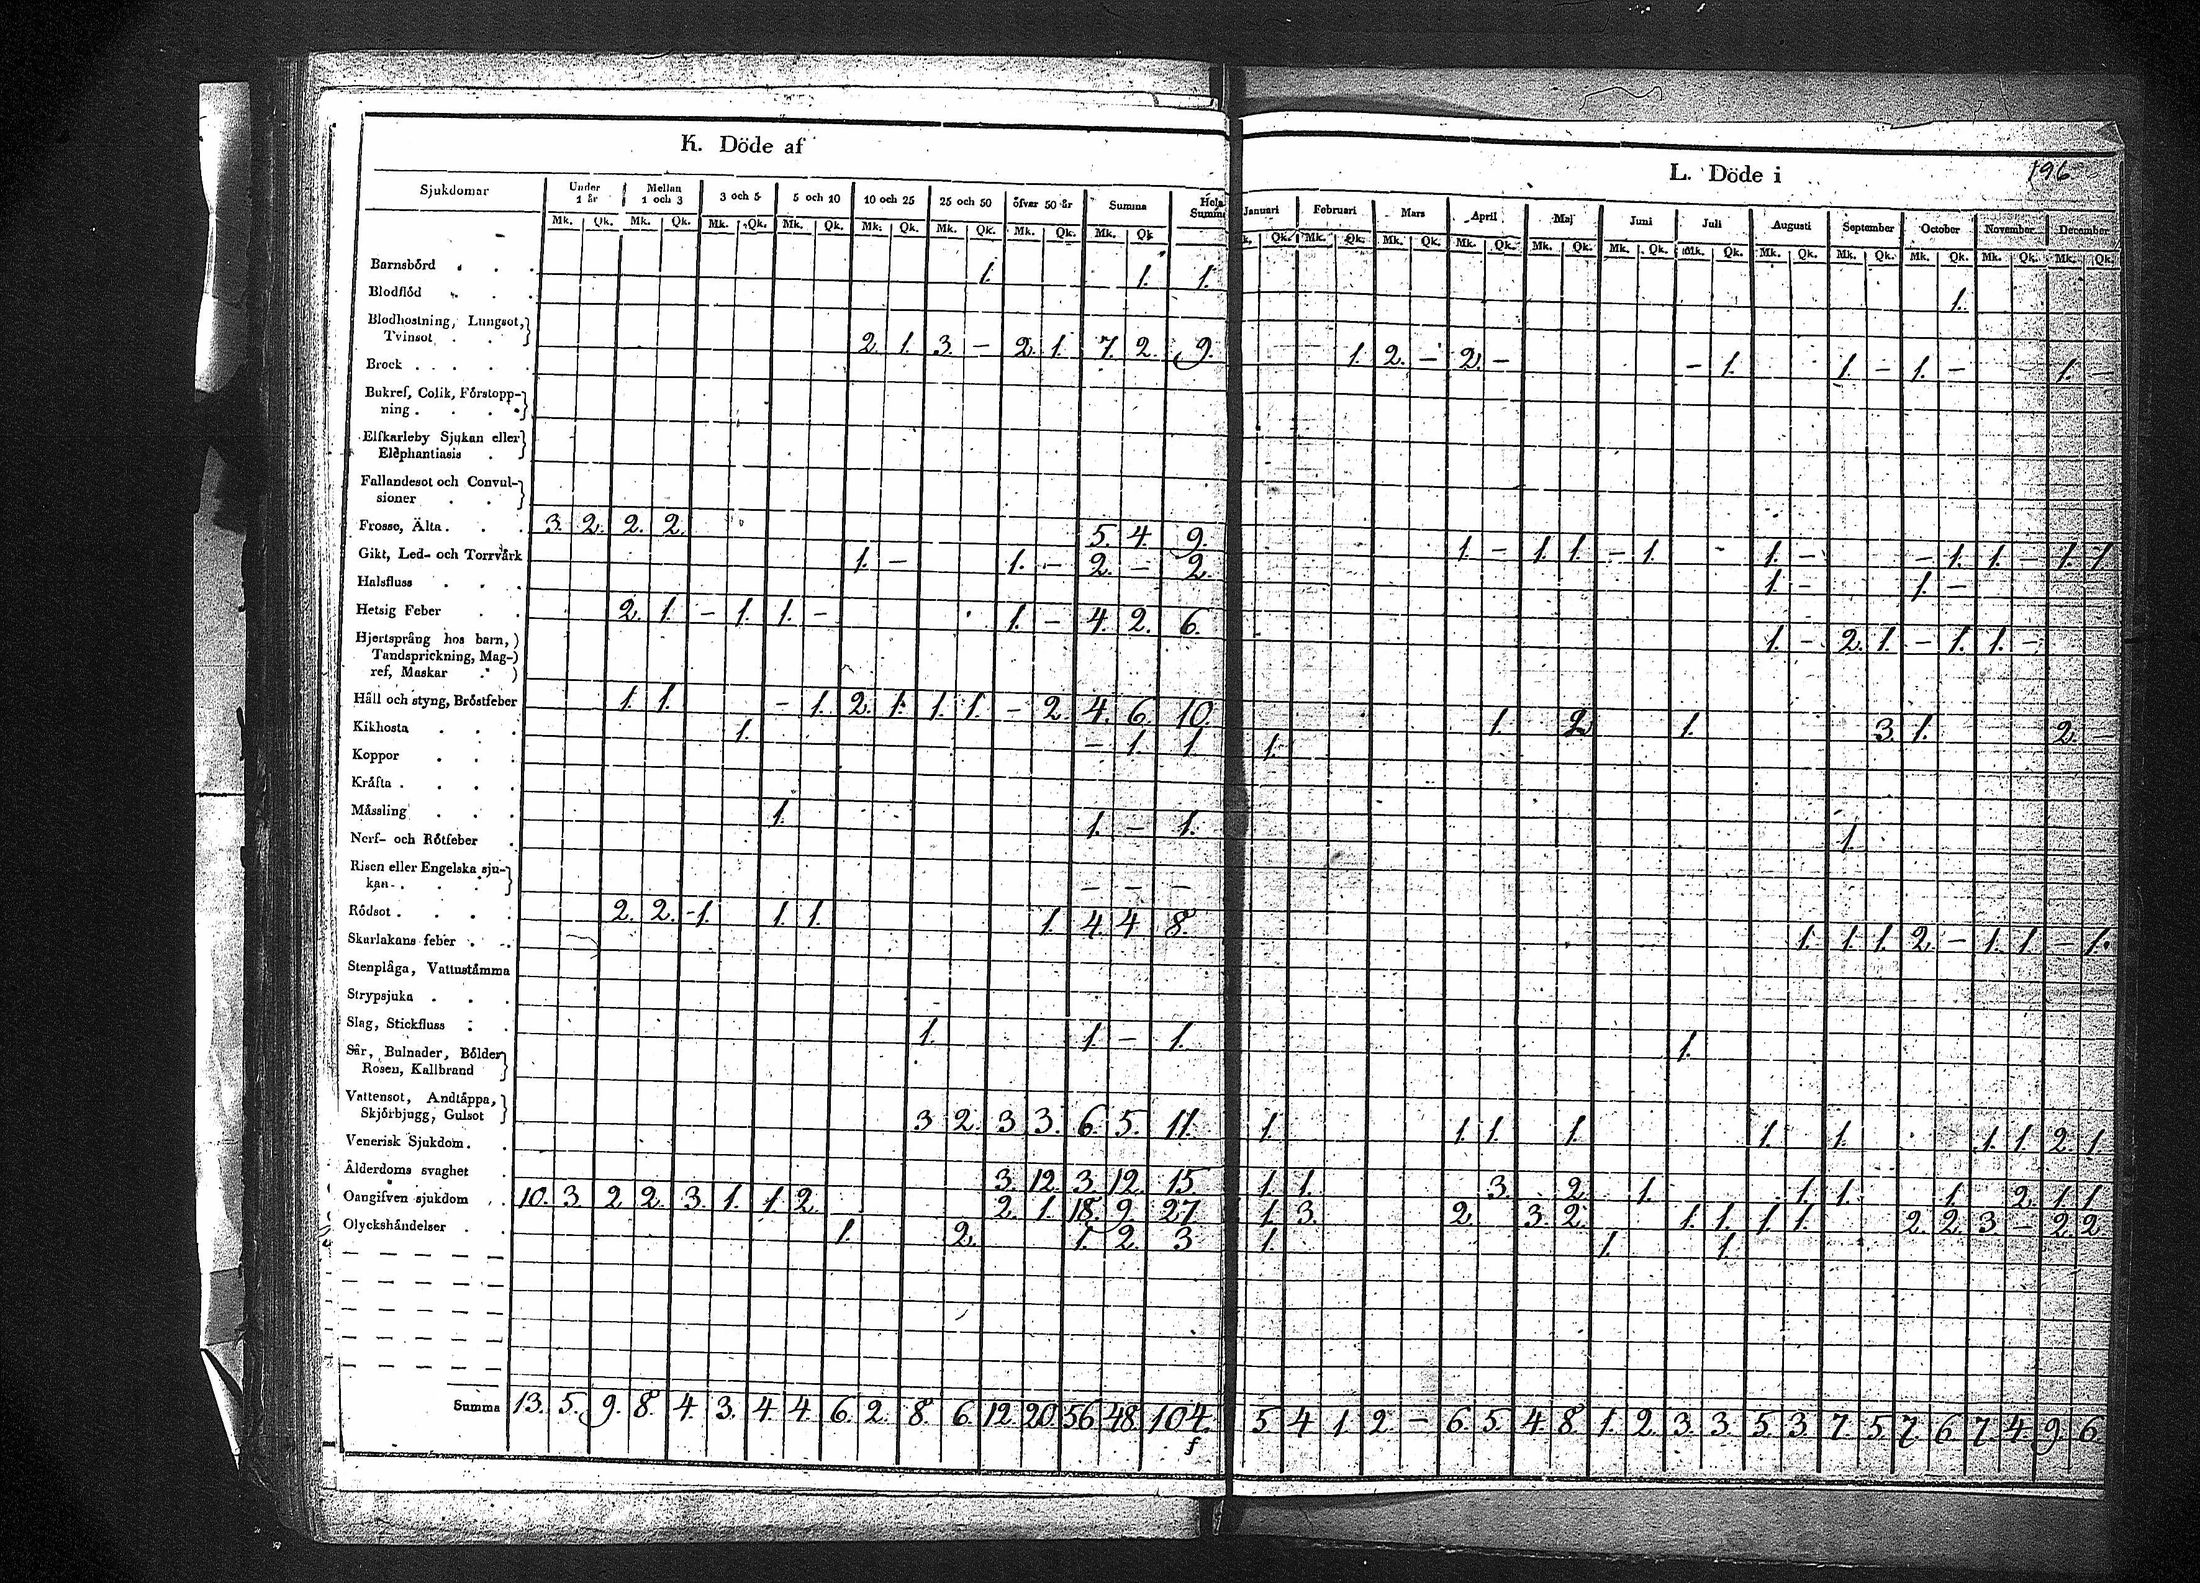 K. Döde af
Sjukdomar | Under 1 år | Mellan 1 och 3 | 3 och 5 | 5 och 10 | 10 och 25 | 25 och 50 | öfver 50 år | Summa | Hela Summa
Mk. Qk. Mk. Qk. Mk. Qk. Mk. Qk. Mk. Qk. Mk. Qk. Mk. Qk. Mk. Qk
Barnsbörd . . . 1. 1. 1.
Blodflöd . . .
Blodhostning, Lungsot,
Tvinsot . . 2. 1. 3. – 2. 1. 7. 2. 9.
Brock . . . . .
Bukref, Colik, Förstopp-
ning . . . .
Elfkarleby Sjukan eller
Elephantiasis .
Fallandesot och Convul-
sioner . .
Frosse, Älta . . . 3. 2. 2. 2. 5. 4. 9.
Gikt, Led- och Torrvärk 1. – 1. – 2. – 2.
Halsfluss . . .
Hetsig Feber . . 2. 1. – 1. 1. – 1. – 4. 2. 6.
Hjertsprång hos barn,
Tandsprickning, Mag-
ref, Maskar .
Håll och styng, Bröstfeber 1. 1. – 1. 2. 1. 1. 1. – 2. 4. 6. 10.
Kikhosta . . . 1. – 1. 1.
Koppor . . .
Kräfta . . . .
Mässling . . . 1. 1. – 1.
Nerf- och Rötfeber .
Risen eller Engelska sju-
kan . . . – – –
Rödsot . . . . 2. 2. -1. 1. 1. 1. 4. 4 8.
Skarlakans feber . .
Stenplåga, Vattustämma
Strypsjuka . . .
Slag, Stickfluss . . 1. 1. – 1.
Sår, Bulnader, Bölder
Rosen, Kallbrand
Vattensot, Andtäppa,
Skjörbjugg, Gulsot 3 2. 3 3. 6. 5. 11.
Venerisk Sjukdom . .
Ålderdoms svaghet . 3. 12. 3. 12. 15
Oangifven sjukdom . . 10. 3. 2. 2. 3. 1. 1. 2. 2. 1. 18. 9. 27
Olyckshändelser . . 1. 2. 1. 2. 3
Summa 13. 5. 9. 8. 4. 3. 4. 4. 6. 2. 8. 6. 12. 20. 56 48. 104.
L. Döde i
196
Januari | Februari | Mars | April | Maj | Juni | Juli | Augusti | September | October | November | December
Qk. Mk. Qk. Mk. Qk. Mk. Qk. Mk. Qk. Mk. Qk. Mk. Qk. Mk. Qk. Mk. Qk. Mk. Qk. Mk. Qk. Mk. Qk.
1.
1. 2. – 2. – – 1. 1. – 1. – 1. –
1. – 1. 1. – 1. 1. – – 1. 1. – 1. 1.
1. – 1. –
1. – 2. 1. – 1. 1. –
1. 2. 1. 3. 1. 2. –
1.
1.
1. 1. 1. 2. – 1. 1. – 1.
1.
1. 1. 1. 1. 1. 1. 1. 1. 2. 1.
1. 1. 3. 2. 1. 1. 1. 1. 2. 1. 1.
1. 3. 2. 3. 2. 1. 1. 1. 1. 2. 2. 3. – 2. 2.
1. 1. 1.
5 4 1. 2. – 6. 5. 4. 8. 1. 2. 3. 3. 5. 3. 7. 5. 7. 6. 7. 4. 9. 6.